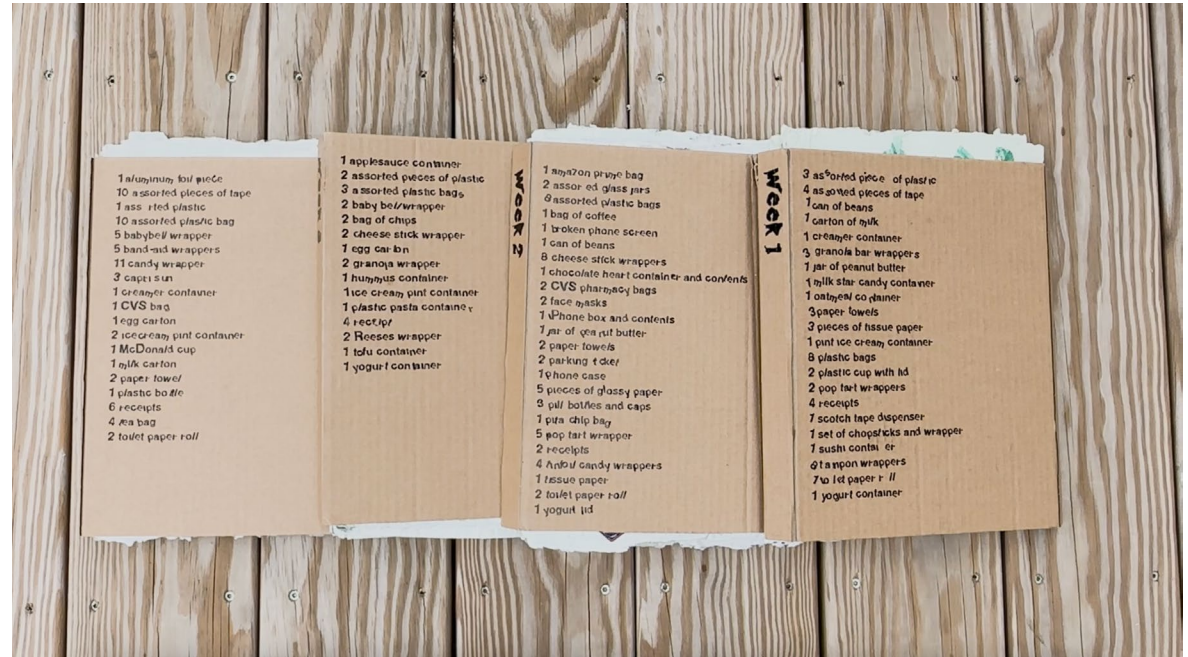 1 aluminum foil piece
10 assorted pieces of tape
1 ass rted plastic
10 assorted plastic bag
5 babybel wrapper
5 band-aid wrappers
11 candy wrapper
3 capri sun
1 creamer container
1 CVS bag
1 egg carton
2 icecream pint container
1 McDonald cup
1 milk carton
2 paper towel
1 plastic bottle
6 receipts
4 tea bag
2 toilet paper roll
1 applesauce container
2 assorted pieces of plastic
3 assorted plastic bags
2 baby bel wrapper
2 bag of chips
2 cheese stick wrapper
1 egg carton
2 granola wrapper
1 hummus container
1 ice cream pint container
1 plastic pasta container
4 receipt
2 Reeses wrapper
1 tofu container
1 yogurt container
Week 2
1 amazon prime bag
2 assor ed glass jars
8 assorted plastic bags
1 bag of coffee
1 broken phone screen
1 can of beans
8 cheese stick wrappers
1 chocolate heart container and contents
2 CVS pharmacy bags
2 face masks
1 iPhone box and contents
1 jar of peanut butter
2 paper towels
2 parking ticket
1 phone case
5 pieces of glossy paper
3 pill bottles and caps
1 pita chip bag
5 pop tart wrapper
2 receipts
4 candy wrappers
1 tissue paper
2 toilet paper roll
1 yogurt lid
Week 1
3 assorted piece of plastic
4 assorted pieces of tape
1 can of beans
1 carton of milk
1 creamer container
3 granola bar wrappers
1 jar of peanut butter
1 milk star candy container
1 oatmeal container
3 paper towels
3 pieces of tissue paper
1 pint ice cream container
8 plastic bags
2 plastic cup with lid
2 pop tart wrappers
4 receipts
1 scotch tape dispenser
1 set of chopsticks and wrapper
1 sushi contai er
tampon wrappers
paper
1 yogurt container